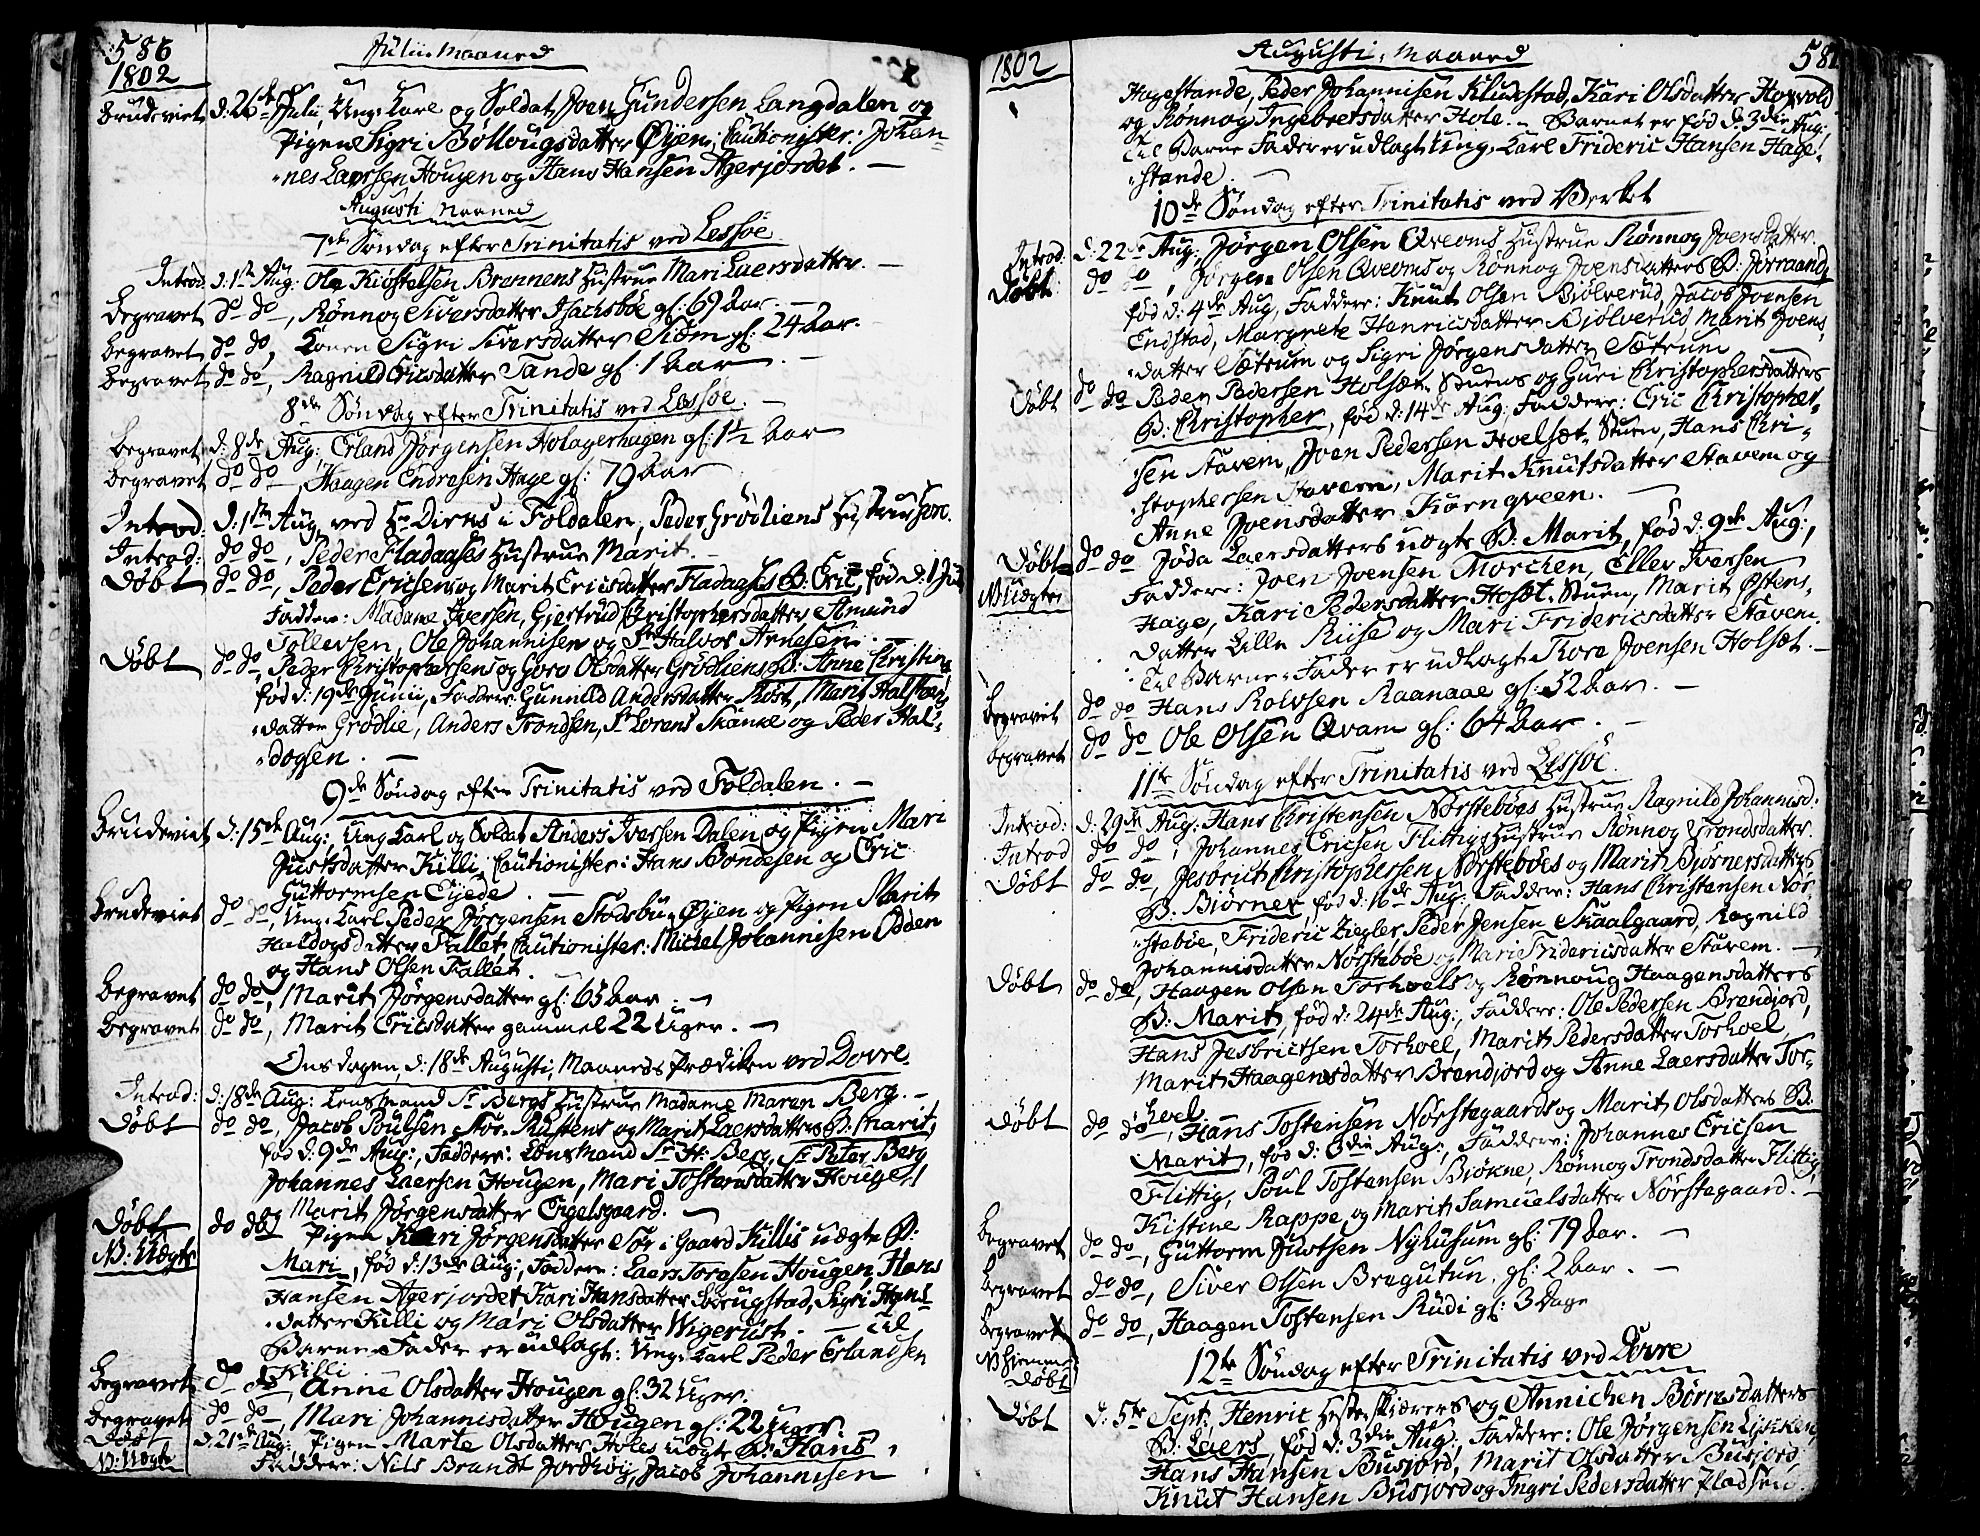 586
1802
Julii Maaned
Brudeviet d: 26de Julii, Ung Karl og Soldat Joen Gundersen Langdalen og
Pigen Sigri Bottougsdatter Øyen; Cautionister: Johan-
nes Laersen Hougen og Hans Hansen Agerjordet. —
Augusti Maaned
7de Søndag efter Trinitatis ved Lessøe
Introd. d: 1te Aug: Ole Kiøstelsen Brennens Hustrue Mari Laersdatter. —
Begravet do do, Rønnog Siversdatter Isachsbøe gl: 69 Aar. —
Begravet do do, Konen Sigri Siversdatter gl: 24 Aar.
Begravet do do, Ragnild Ericsdatter Tande gl: 1 Aar. —
8de Søndag efter Trinitatis ved Lessøe. —
Begravet d: 8de Aug: Erland Jørgensen Holagerhagen gl: 1½ Aar
Begravet do do, Haagen Endresen Hage gl: 79 Aar
Introd: d: 1te Aug ved Hr Dirks i Foldalen, Peder Grødliens Hustrue Goro.
Introd: do do, Peder Fladaases Hustrue Marit. —
Døbt do do, Peder Ericsen og Marit Ericsdatter Fladaases B: Eric, fød d: 1 Jul
Faddere: Madame Iversen, Giertrud Christophersdatter, Amund
Tollevsen, Ole Johannisen og Sr Halvor Arnesen. —
Døbt do do, Peder Christophersens og Goro Olsdatter Grødliens B: Anne Christine
fød d: 19de Junii, Faddere: Gunnild Andersdatter Røst, Marit Halsteens-
datter Grødlie, Anders Trondsen, Sr Lorens Skanke og Peder Hal-
dogsen. —
9de Søndag efter Trinitatis ved Foldalen. —
Brudeviet d: 15de Aug: Ung Karl og Soldat Anders Iversen Dalen og Pigen Mari
Justsdatter Killi, Cautionister: Hans Bondesen og Eric
Guttormsen Eiede. —
Brudeviet do do, Ung Karl Peder Jørgensen Stodsbu Øyen og Pigen Marit
Haldogsdatter Fallet, Cautionister: Michel Johannisen Odden
og Hans Olsen Fallet.
Begravet do do, Marit Jørgensdatter gl: 65 Aar. —
Begravet do do, Marit Ericsdatter gammel 22 Uger. —
Onsdagen, d: 18de Augusti, Maaneds Prædiken ved Dovre.
Introd: d: 18de Aug: Lensmand Sr Bergs Hustrue Madame Maren Berg. —
Døbt do do, Jacob Poulsen Sør-Rustens og Marit Laersdatters B: Marit,
fød d: 9de Aug:, Faddere: Lensmand Sr H: Berg, Sr Peter Berg
Johannes Laersen Hougen, Mari Tostensdatter Hougen
og Marit Jørgensdatter Engelsgaard. —
Døbt do do Pigen Kari Jørgensdatter Sør i Gaard Killis uægte B:
NB: Uægte Mari, fød d: 13de Aug:, Faddere: Laers Toresen Hougen, Hans
Hansen Agerjordet, Kari Hansdatter, Sigri Hans-
datter Killi og Mari Olsdatter Wigerust. — Til
Barne Fader er udlagt: Ung Karl Peder Erlandsen
Killi
Begravet do do, Anne Olsdatter Hougen gl: 32 Uger.
Begravet do do, Mari Johannisdatter Hougen gl: 22 Uger.
Døbt d: 21de Aug: Pigen Marte Olsdatter Holes uægte B: Hans,
NB: Uægte Faddere: Nils Brandt Jordhøy, Jacob Johannisen
1802
Augusti, Maaned
58
Hagestande, Peder Johannisen Kludestad, Kari Olsdatter Horvold
og Rønnog Ingebretsdatter Hole. — Barnet er fød d: 3die Aug:
Til Barne Fader er udlagt Ung Karl Frideric Hansen Hage-
stande. —
10de Søndag efter Trinitatis ved Verket
Introd: d: 22de Aug: Jørgen Olsen Qveoms Hustrue Rønnog Joensdatter.
Døbt do do, Jørgen Olsen Qveoms og Rønnog Joensdatters B: Jorraand
fød d: 4de Aug, Faddere: Knut Olsen Biølverud, Jacob Joensen
Endstad, Margrete Henricsdatter Biølverud Marit Joens-
datter Sætrum og Sigri Jørgensdatter Sætrum —
Døbt do do Peder Pedersen Holsæt Stuens og Guri Christophersdatters
B: Christopher, fød d: 14de Aug: Faddere: Eric Christopher-
sen Stavem, Joen Pedersen Hoelsæt-Stuen, Hans Chri-
stophersen Stavem, Marit Knutsdatter Stavem og
Anne Joensdatter Korngveen. —
Døbt do do Jøda Laersdatters uægte B: Marit, fød d: 9de Aug:,
NB Uægte Faddere: Joen Joensen Morchen, Eller Iversen
Hage, Kari Pedersdatter Hosæt-Stuen, Marit Østens-
datter Lille Riise og Mari Fridericsdatter Stavem.
Til Barne-Fader er udlagt Tore Joensen Holsæt. —
Begravet do do Hans Rolvsen Raanaae gl: 52 Aar. —
Begravet do do Ole Olsen Qvam gl: 64 Aar. —
11te Søndag efter Trinitatis ved Lessøe.
Introd: d: 29de Aug: Hans Christensen Nørstebøes Hustrue Ragnild Johannisd:
Introd do do, Johannes Ericsen Flittigs Hustrue Rønnog Trondsdatter.
Døbt do do, Jesbrict Christophersen Nørstebøes og Marit Biørnersdatters
B: Biørner, fød d: 16de Aug: Faddere: Hans Christensen Nør-
stebøe, Frideric Ziegler Peder Jensen Skaalgaard, Ragnild
Johannisdatter Nørstebøe og Marie Fridericsdatter Stavem. —
Døbt do do, Haagen Olsen Torhoels og Rønnoug Haagensdatters
B: Marit, fød d: 24de Aug:, Faddere: Ole Pedersen Brendjord,
Hans Jesbrictsen Torhoel, Marit Pedersdatter Torhoel,
Marit Haagensdatter Brendjord og Anne Laersdatter Tor-
hoel —
Døbt do do, Hans Tostensen Nørstegaards og Marit Olsdatters B.
Marit, fød d: 3die Aug:, Faddere: Johannes Ericsen
Flittig, Poul Tostensen Biøkne, Rønnog Trondsdatter Flittig,
Kistine Rappe og Marit Samuelsdatter Nørstegaard. —
Begravet do do, Guttorm Justsen Nyhusum gl: 79 Aar. —
Begravet do do, Siver Olsen Bregutun, gl: 2 Aar. —
Begravet do do, Haagen Tostensen Rudi gl: 3 Dage
NB Hjemme Døbt
12te Søndag efter Trinitatis ved Dovre
Døbt d: 5te Sept: Henric Hesteskiærers og Annichen Børnsdatters
B: Laers, fød d: 3die Aug: Faddere: Ole Jørgensen Lykken,
Hans Hansen Busjord, Marit Olsdatter Busjord,
Knut Hansen Busjord og Ingri Pedersdatter Pladsen.